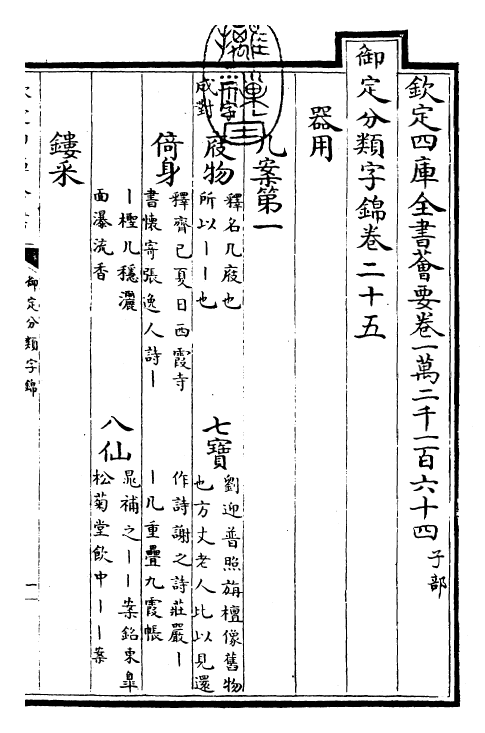 欽定四庫全書薈要卷一萬二千一百六十四 子部
御定分類字錦卷二十五
器用
几案第一
二字
成對
庪物
釋名几庪也
所以｜｜也
七寶
劉迎普照旃檀像舊物
也方丈老人比以見還
作詩謝之詩莊嚴｜
｜几重疊九霞帳
倚身
釋齊己夏日西霞寺
書懷寄張逸人詩｜
｜檉几穩灑
面瀑流香
八仙
晁補之｜｜案銘東皐
松菊堂飲中｜｜案
鏤采
御定分類字錦
一